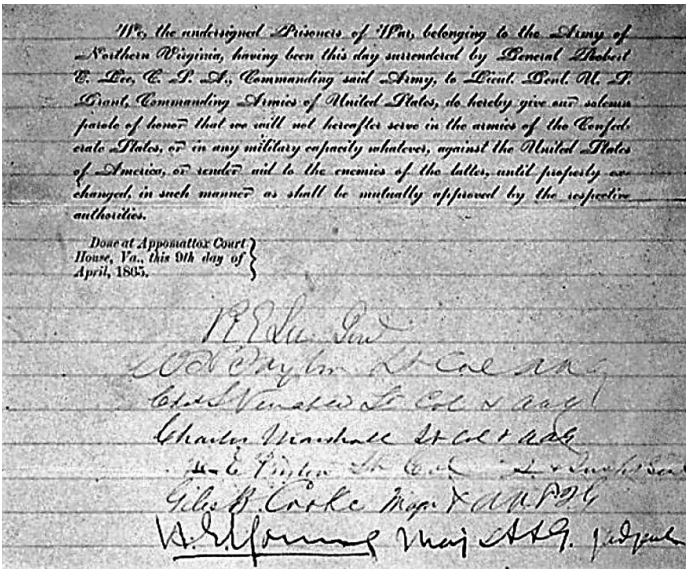 We, the undersigned Prisoners of War, belonging to the Army of
Northern Virginia, having been this day surrendered by General Robert
E. Lee, C. S. A., Commanding said Army, to Lieut. Genl. U. S.
Grant, Commanding Armies of United States, do hereby give our solemn
parole of honor that we will not hereafter serve in the armies of the Confed-
erate States, or in any military capacity whatever, against the United States
of America, or render aid to the enemies of the latter, until properly ex-
changed, in such manner as shall be mutually approved by the respective
authorities.
Done at Appomattox Court
House, Va., this 9th day of
April, 1865.
R E Lee Genl
W H Taylor Lt Col A A G
Chas S Venable Lt Col & A A G
Charles Marshall Lt Col & A A G
H E Peyton Lt Col &
Giles B. Cooke Major & A A
H. E. Young Maj A A G.